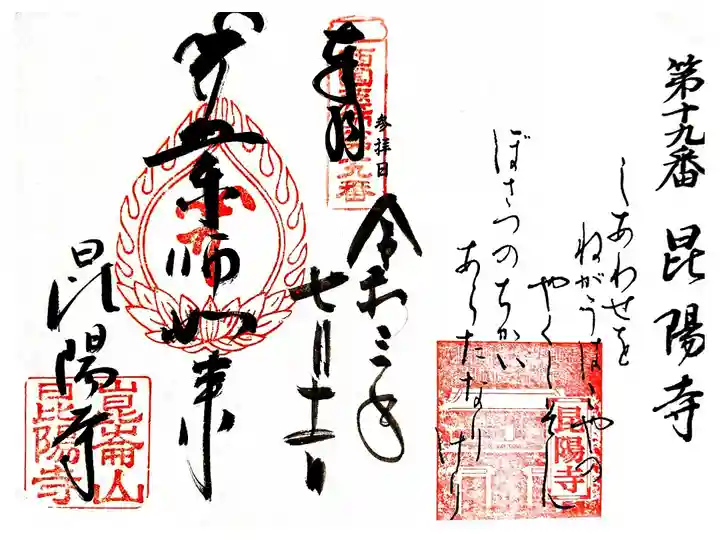 第十九番 昆陽寺
しあわせを
ねがうはやつの
やくしそん
ぼさつのちかい
あらたなりけり
昆陽寺
奉拝
西国薬師第十九番
参拝日
令和三年
七月十二日
薬師如来
昆陽寺
崑崙山
昆陽寺